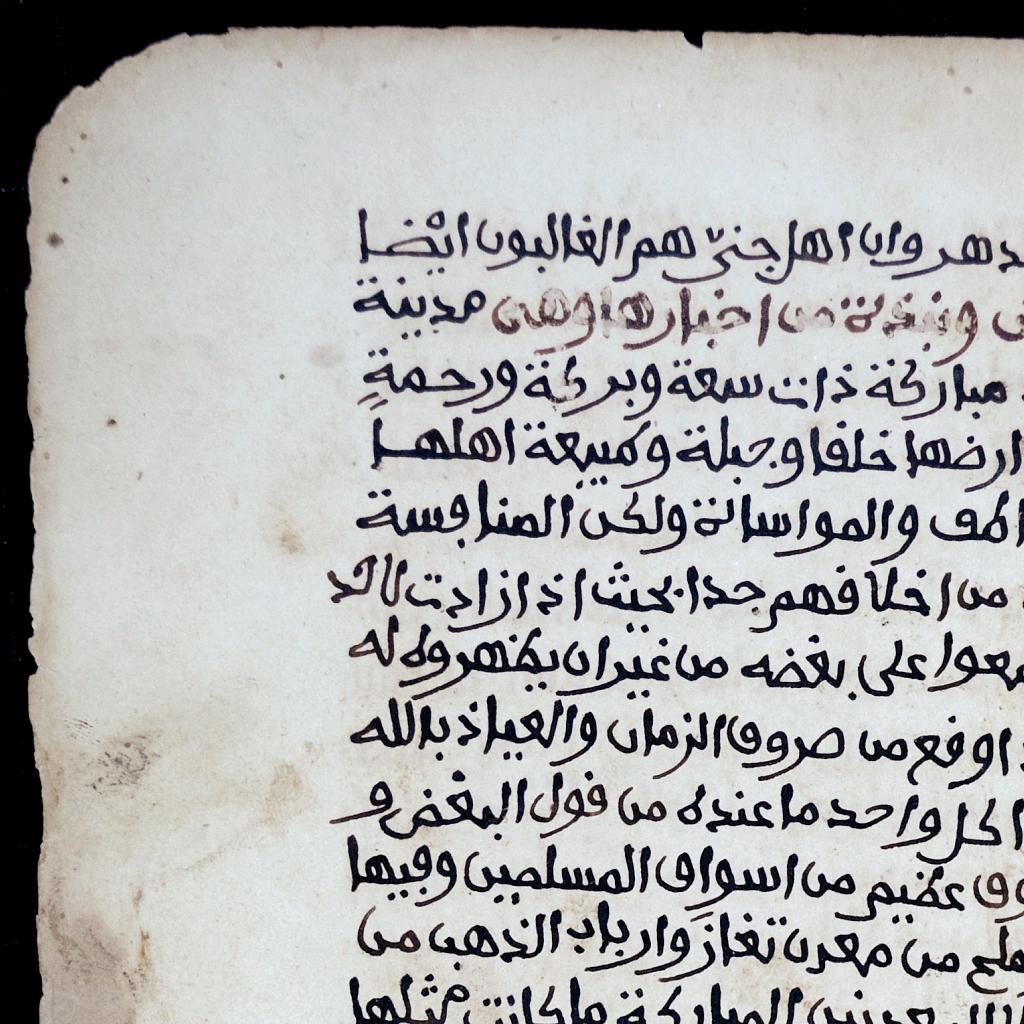 دهر وان اهل جنى هم الغالبون ايضا
ونبذة من اخبارها وهى مدينة
مباركة ذات سعة وبركة ورحمة
ارضها خلفا وجبلة وطبيعة اهلها
والمواساة ولكن المنافسة
من اخلافهم جدا بحيث اذا زادت لاحد
على بغضه من غير ان يظهروه له
وفع من صروف الزمان والعياذ بالله
كل واحد ما عنده من فول البغض و
عظيم من اسواق المسلمين وفيها
من معدن تغاز وارباب الذهب من
المباركة ما كانت مثلها